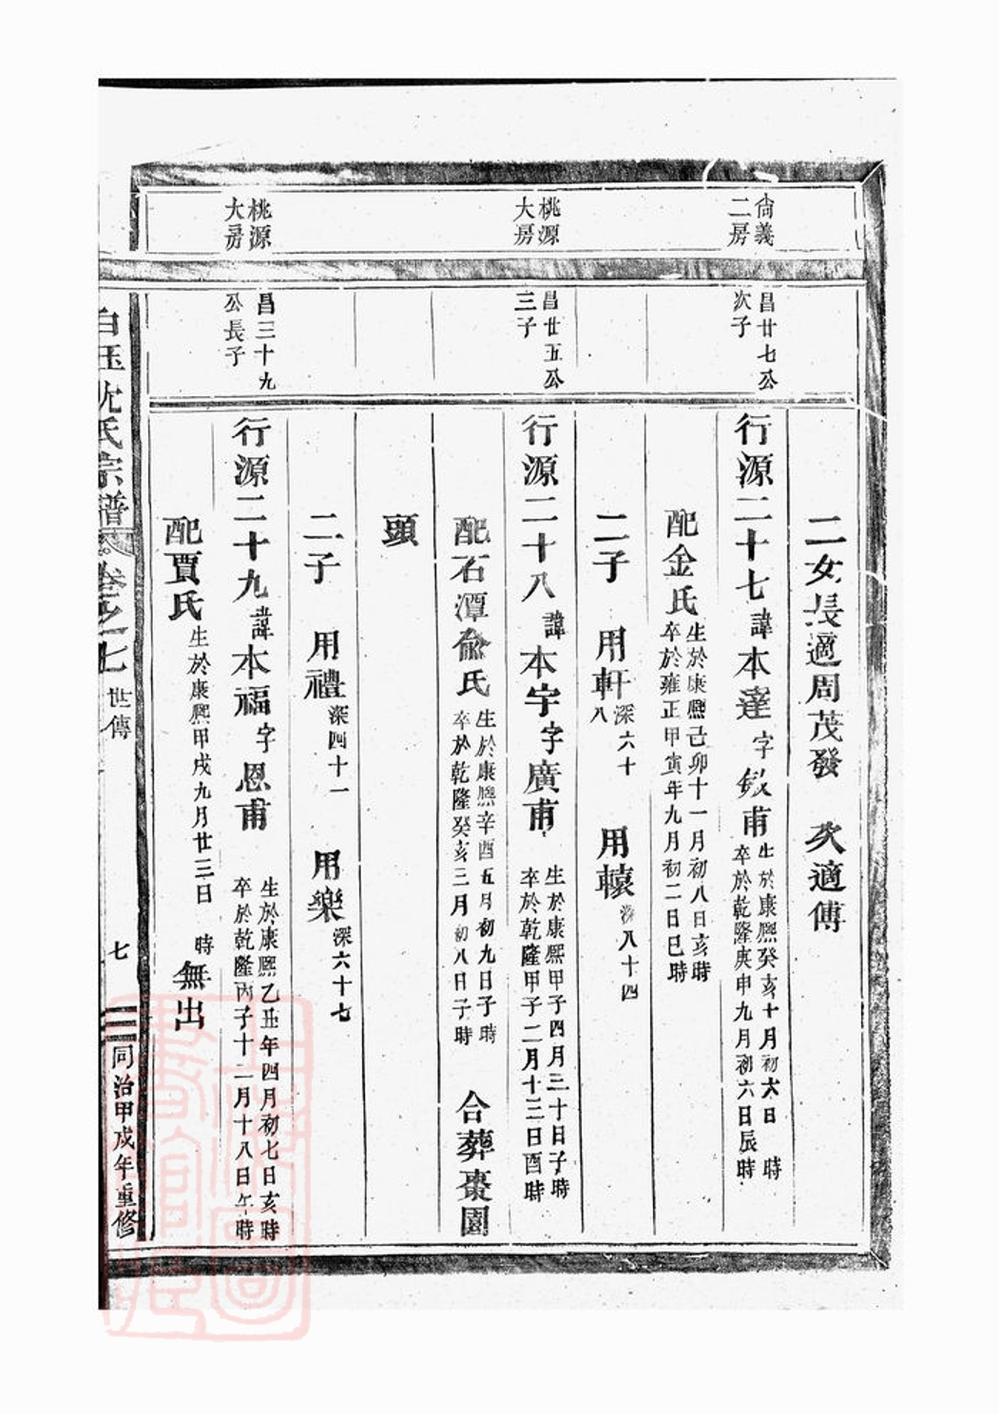 尙義
二房
昌廿七公
次子
桃源
大房
昌廿五公
三子
桃源
大房
昌三十九
公長子
二女長適周茂發 次適傅
行源二十七諱本達字敘甫生於康熙癸亥十月初六日 時
卒於乾隆庚申九月初六日辰時
配金氏生於康熙己卯十一月初八日亥時
卒於雍正甲寅年九月初二日巳時
二子 用軒深六十八 用轅深八十四
行源二十八諱本宇字廣甫生於康熙甲子四月三十日子時
卒於乾隆甲子二月十三日酉時
配石潭俞氏生於康熙辛酉五月初九日子時
卒於乾隆癸亥三月初八日子時 合葬棗園
頭
二子 用禮深四十一 用樂深六十七
行源二十九諱本福字恩甫生於康熙乙丑年四月初七日亥時
卒於乾隆丙子十二月十八日午時
配賈氏生於康熙甲戌九月廿三日 時無出
白玉沈氏宗譜 卷之七 世傳 七 同治甲戌年重修